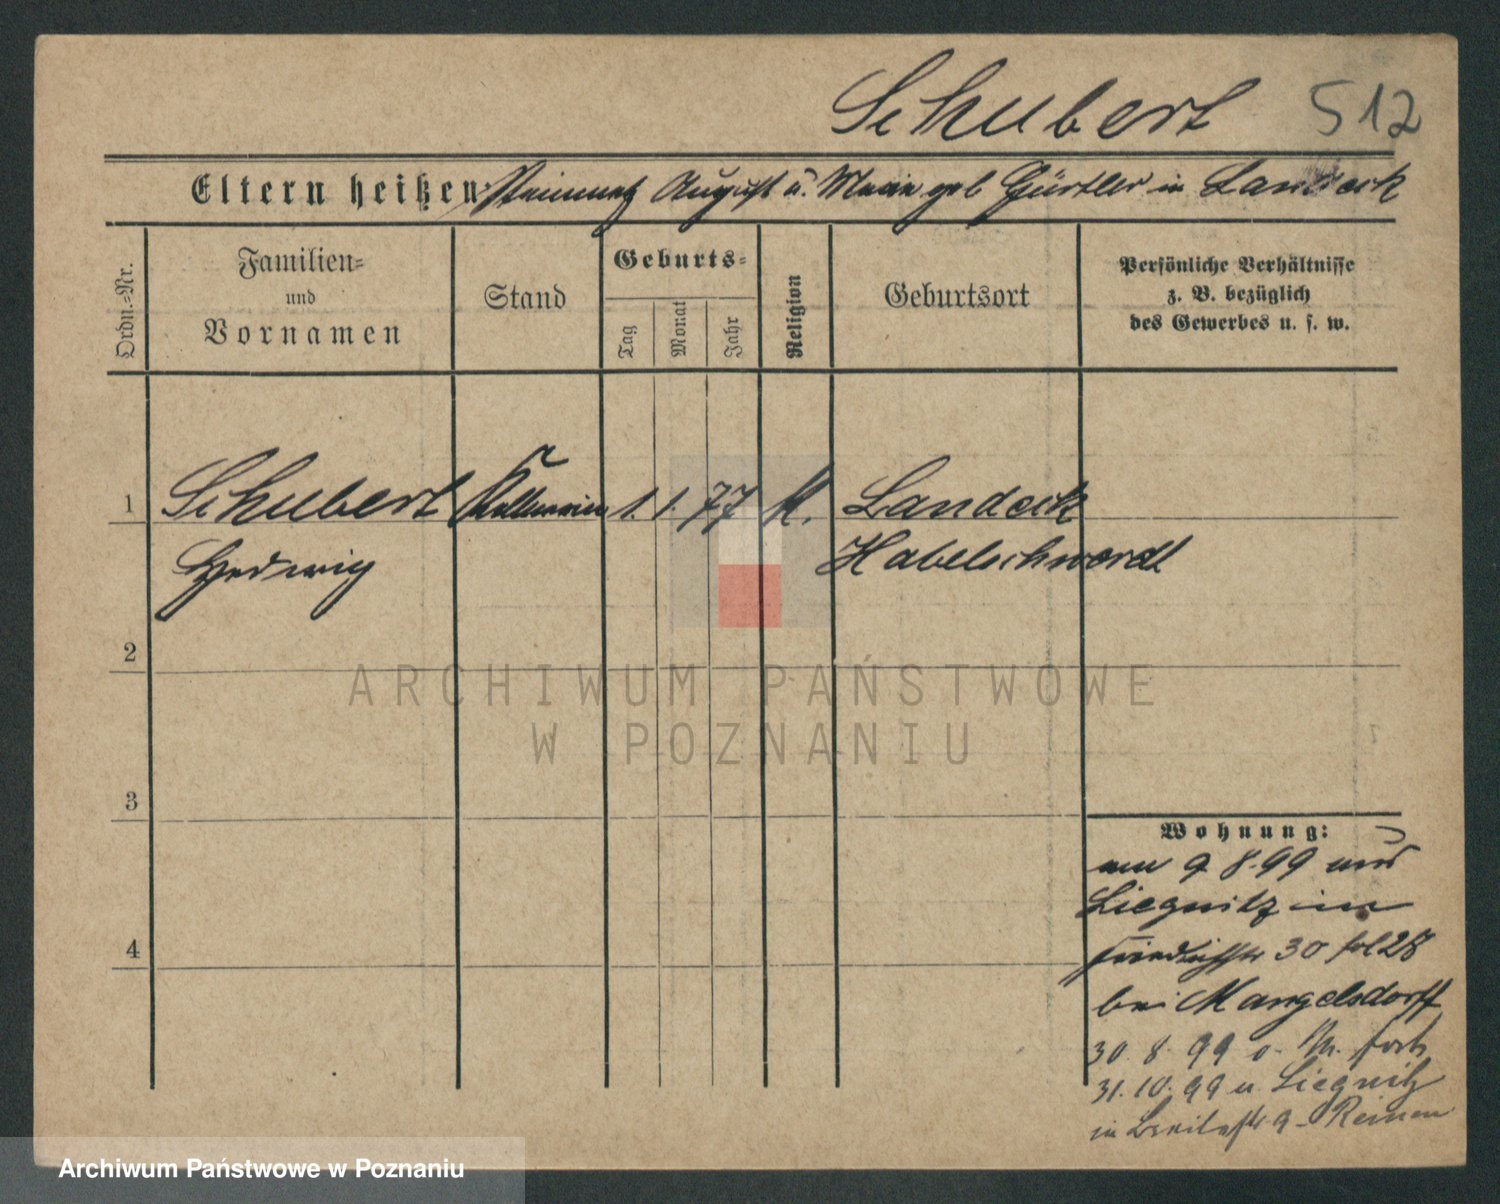 Schubert 512
Eltern heißen: August u. Marie geb Gürtler in Landeck
Ordn.-Nr.
Familien-
und
Vornamen
Stand
Geburts-
Tag
Monat
Jahr
Religion
Geburtsort
Persönliche Verhältnisse
z. B. bezüglich
des Gewerbes u. s. w.
1 Schubert Kellnerin 1. 1. 77 K. Landeck
Hedwig Habelschwerdt
2
3
4
Wohnung:
am 9 8. 99 aus
Liegnitz in
Friedrichstr 30
bei Mangelsdorff
30. 8. 99 fort
31. 10. 99 Liegnitz
in Breitestr 9
ARCHIWUM PAŃSTWOWE
W POZNANIU
Archiwum Państwowe w Poznaniu